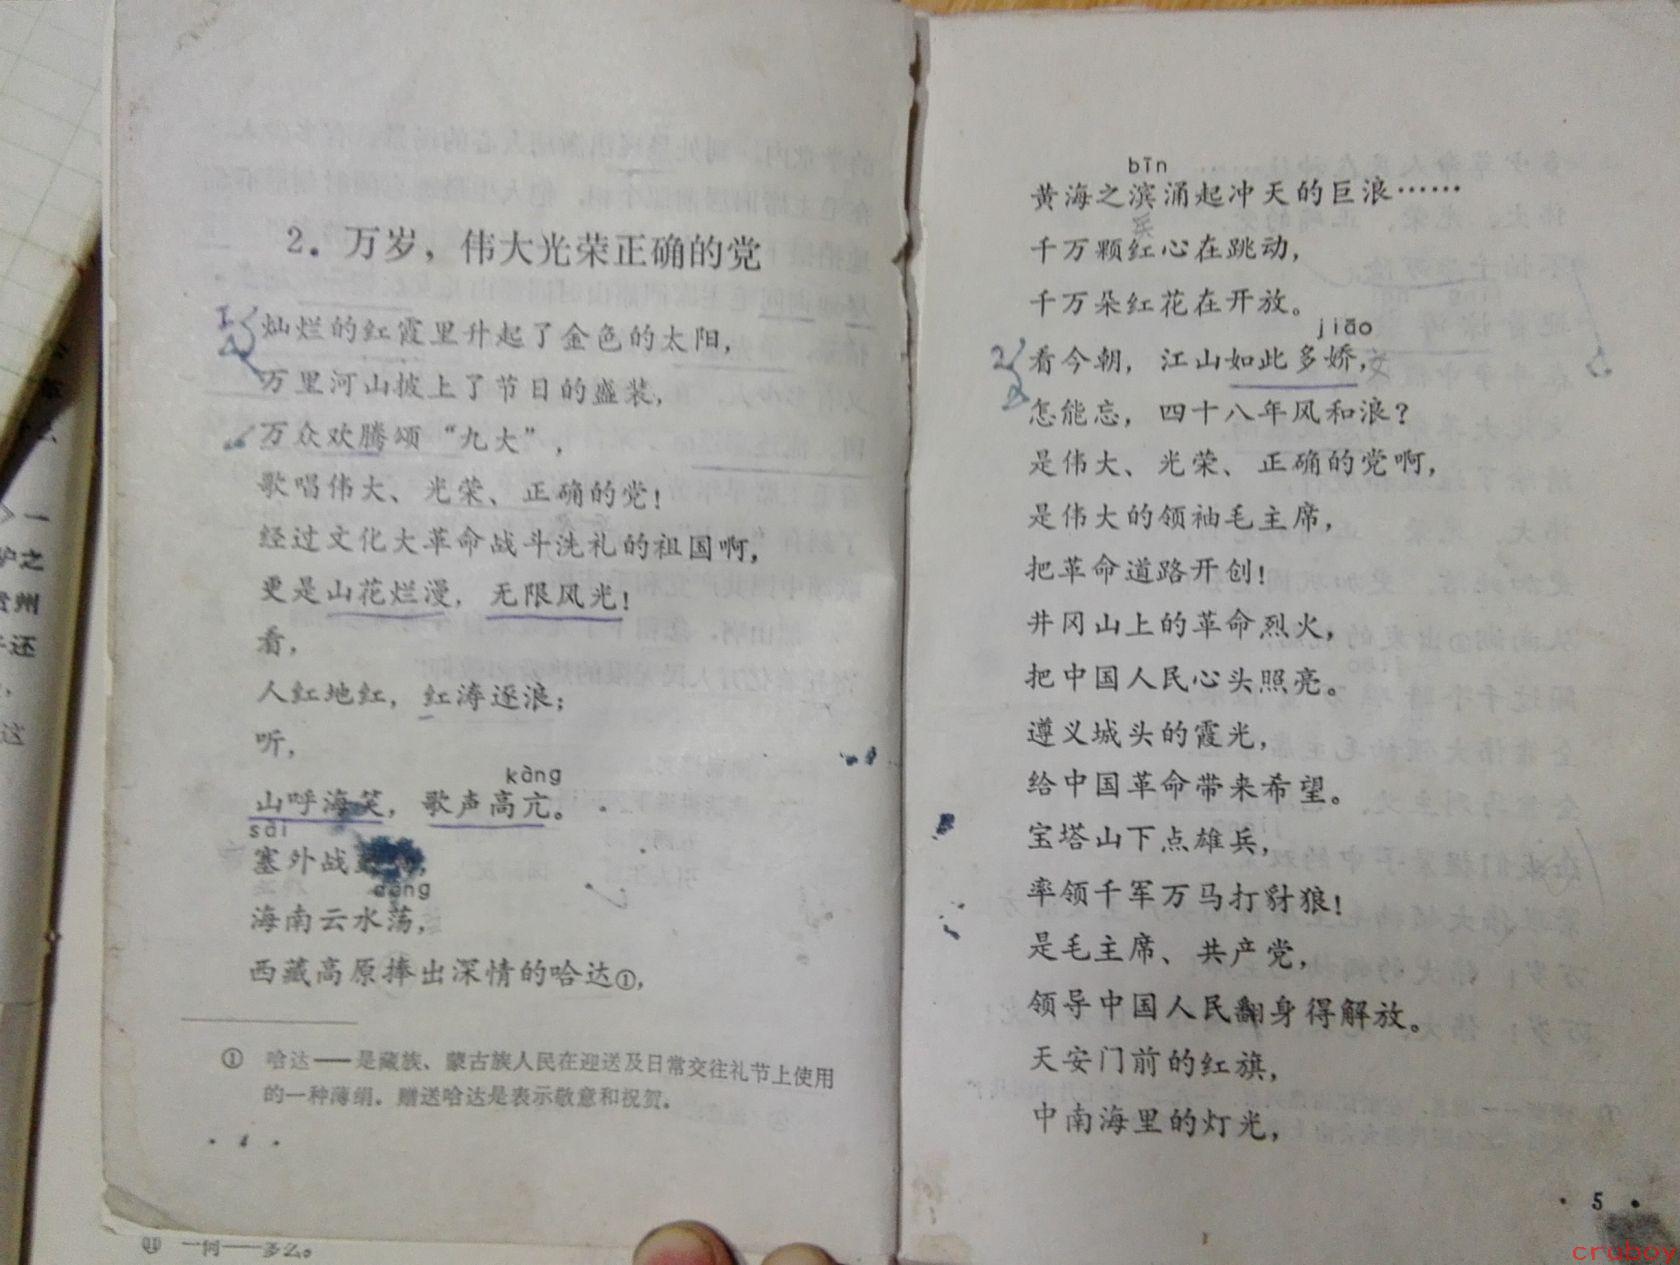 2. 万岁，伟大光荣正确的党
灿烂的红霞里升起了金色的太阳，
万里河山披上了节日的盛装，
万众欢腾颂“九大”，
歌唱伟大、光荣、正确的党！
经过文化大革命战斗洗礼的祖国啊，
更是山花烂漫，无限风光！
看，
人红地红，红涛逐浪；
听，
kàng
山呼海笑，歌声高亢。
sài
塞外战
dàng
海南云水荡，
西藏高原捧出深情的哈达①，
① 哈达——是藏族、蒙古族人民在迎送及日常交往礼节上使用
的一种薄绢。赠送哈达是表示敬意和祝贺。
· 4 ·
一何——多么。
bīn
黄海之滨涌起冲天的巨浪……
千万颗红心在跳动，
千万朵红花在开放。
jiāo
看今朝，江山如此多娇，
怎能忘，四十八年风和浪？
是伟大、光荣、正确的党啊，
是伟大的领袖毛主席，
把革命道路开创！
井冈山上的革命烈火，
把中国人民心头照亮。
遵义城头的霞光，
给中国革命带来希望。
宝塔山下点雄兵，
率领千军万马打豺狼！
是毛主席、共产党，
领导中国人民翻身得解放。
天安门前的红旗，
中南海里的灯光，
· 5 ·
cruboy